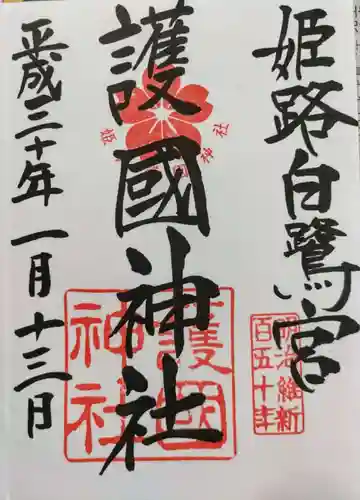 姫路白鷺宮
護國神社
平成三十年一月十三日
護國神社
明治維新
百五十年